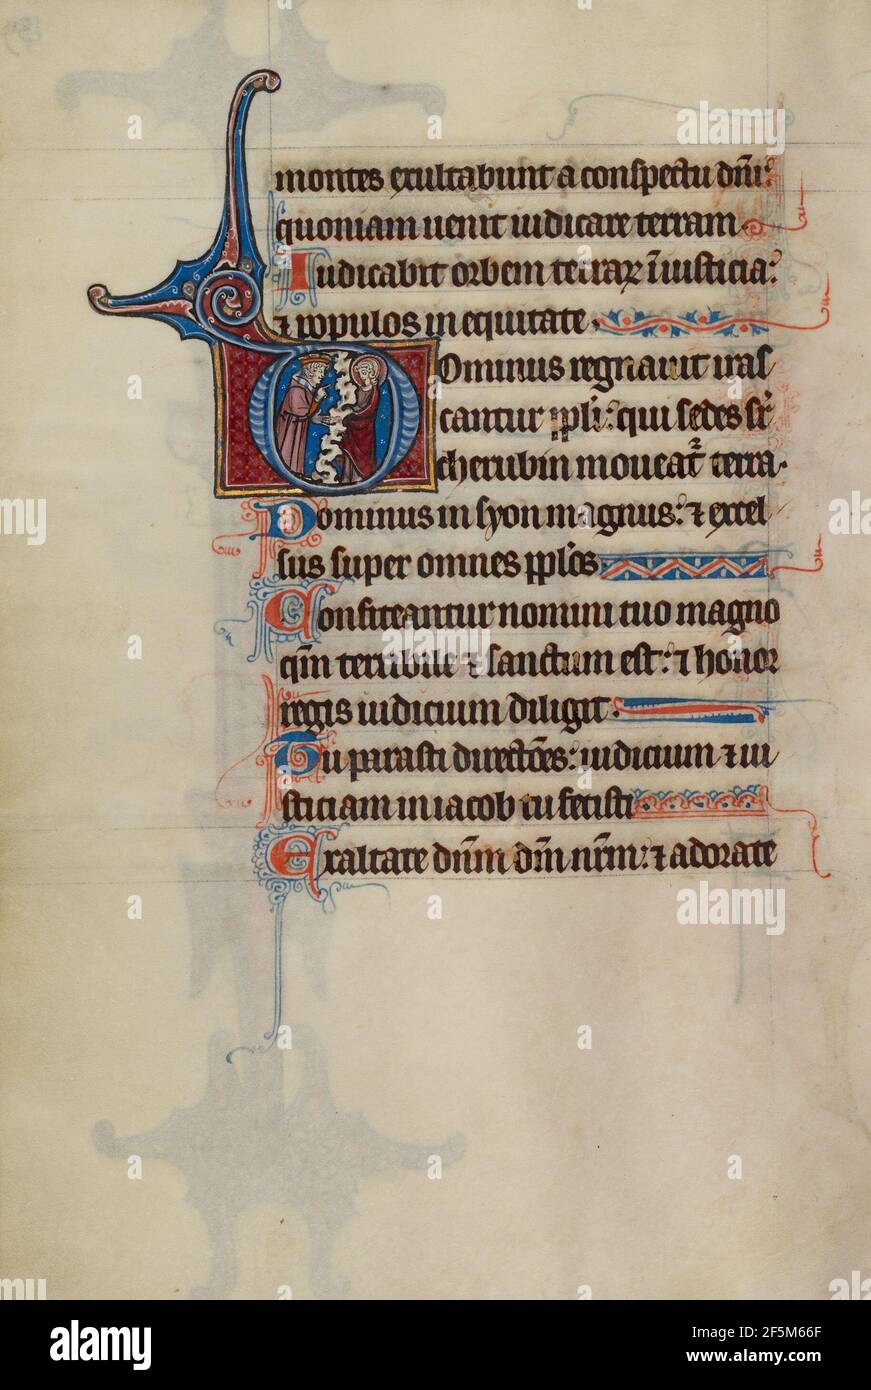 montes exultabunt a conspectu dn̄i:
quoniam uenit iudicare terram
Iudicabit orbem terraꝝ ī iusticia:
⁊ populos in equitate
Dominus regnauit iras
cantur ppl̄i: qui sedes sr̄
cherubin moueat᷑ terra.
Dominus in syon magnus: ⁊ excel
sus super omnes ppl̄os
Confiteantur nomini tuo magno
qm̄ terribile ⁊ sanctum est: ⁊ honor
regis iudicium diligit:
Tu parasti directōes: iudicium ⁊ iu
sticiam in iacob tu fecisti
Exaltate dn̄m dm̄ nr̄m: ⁊ adorate
alamy
Image ID: 2F5M66F
www.alamy.com